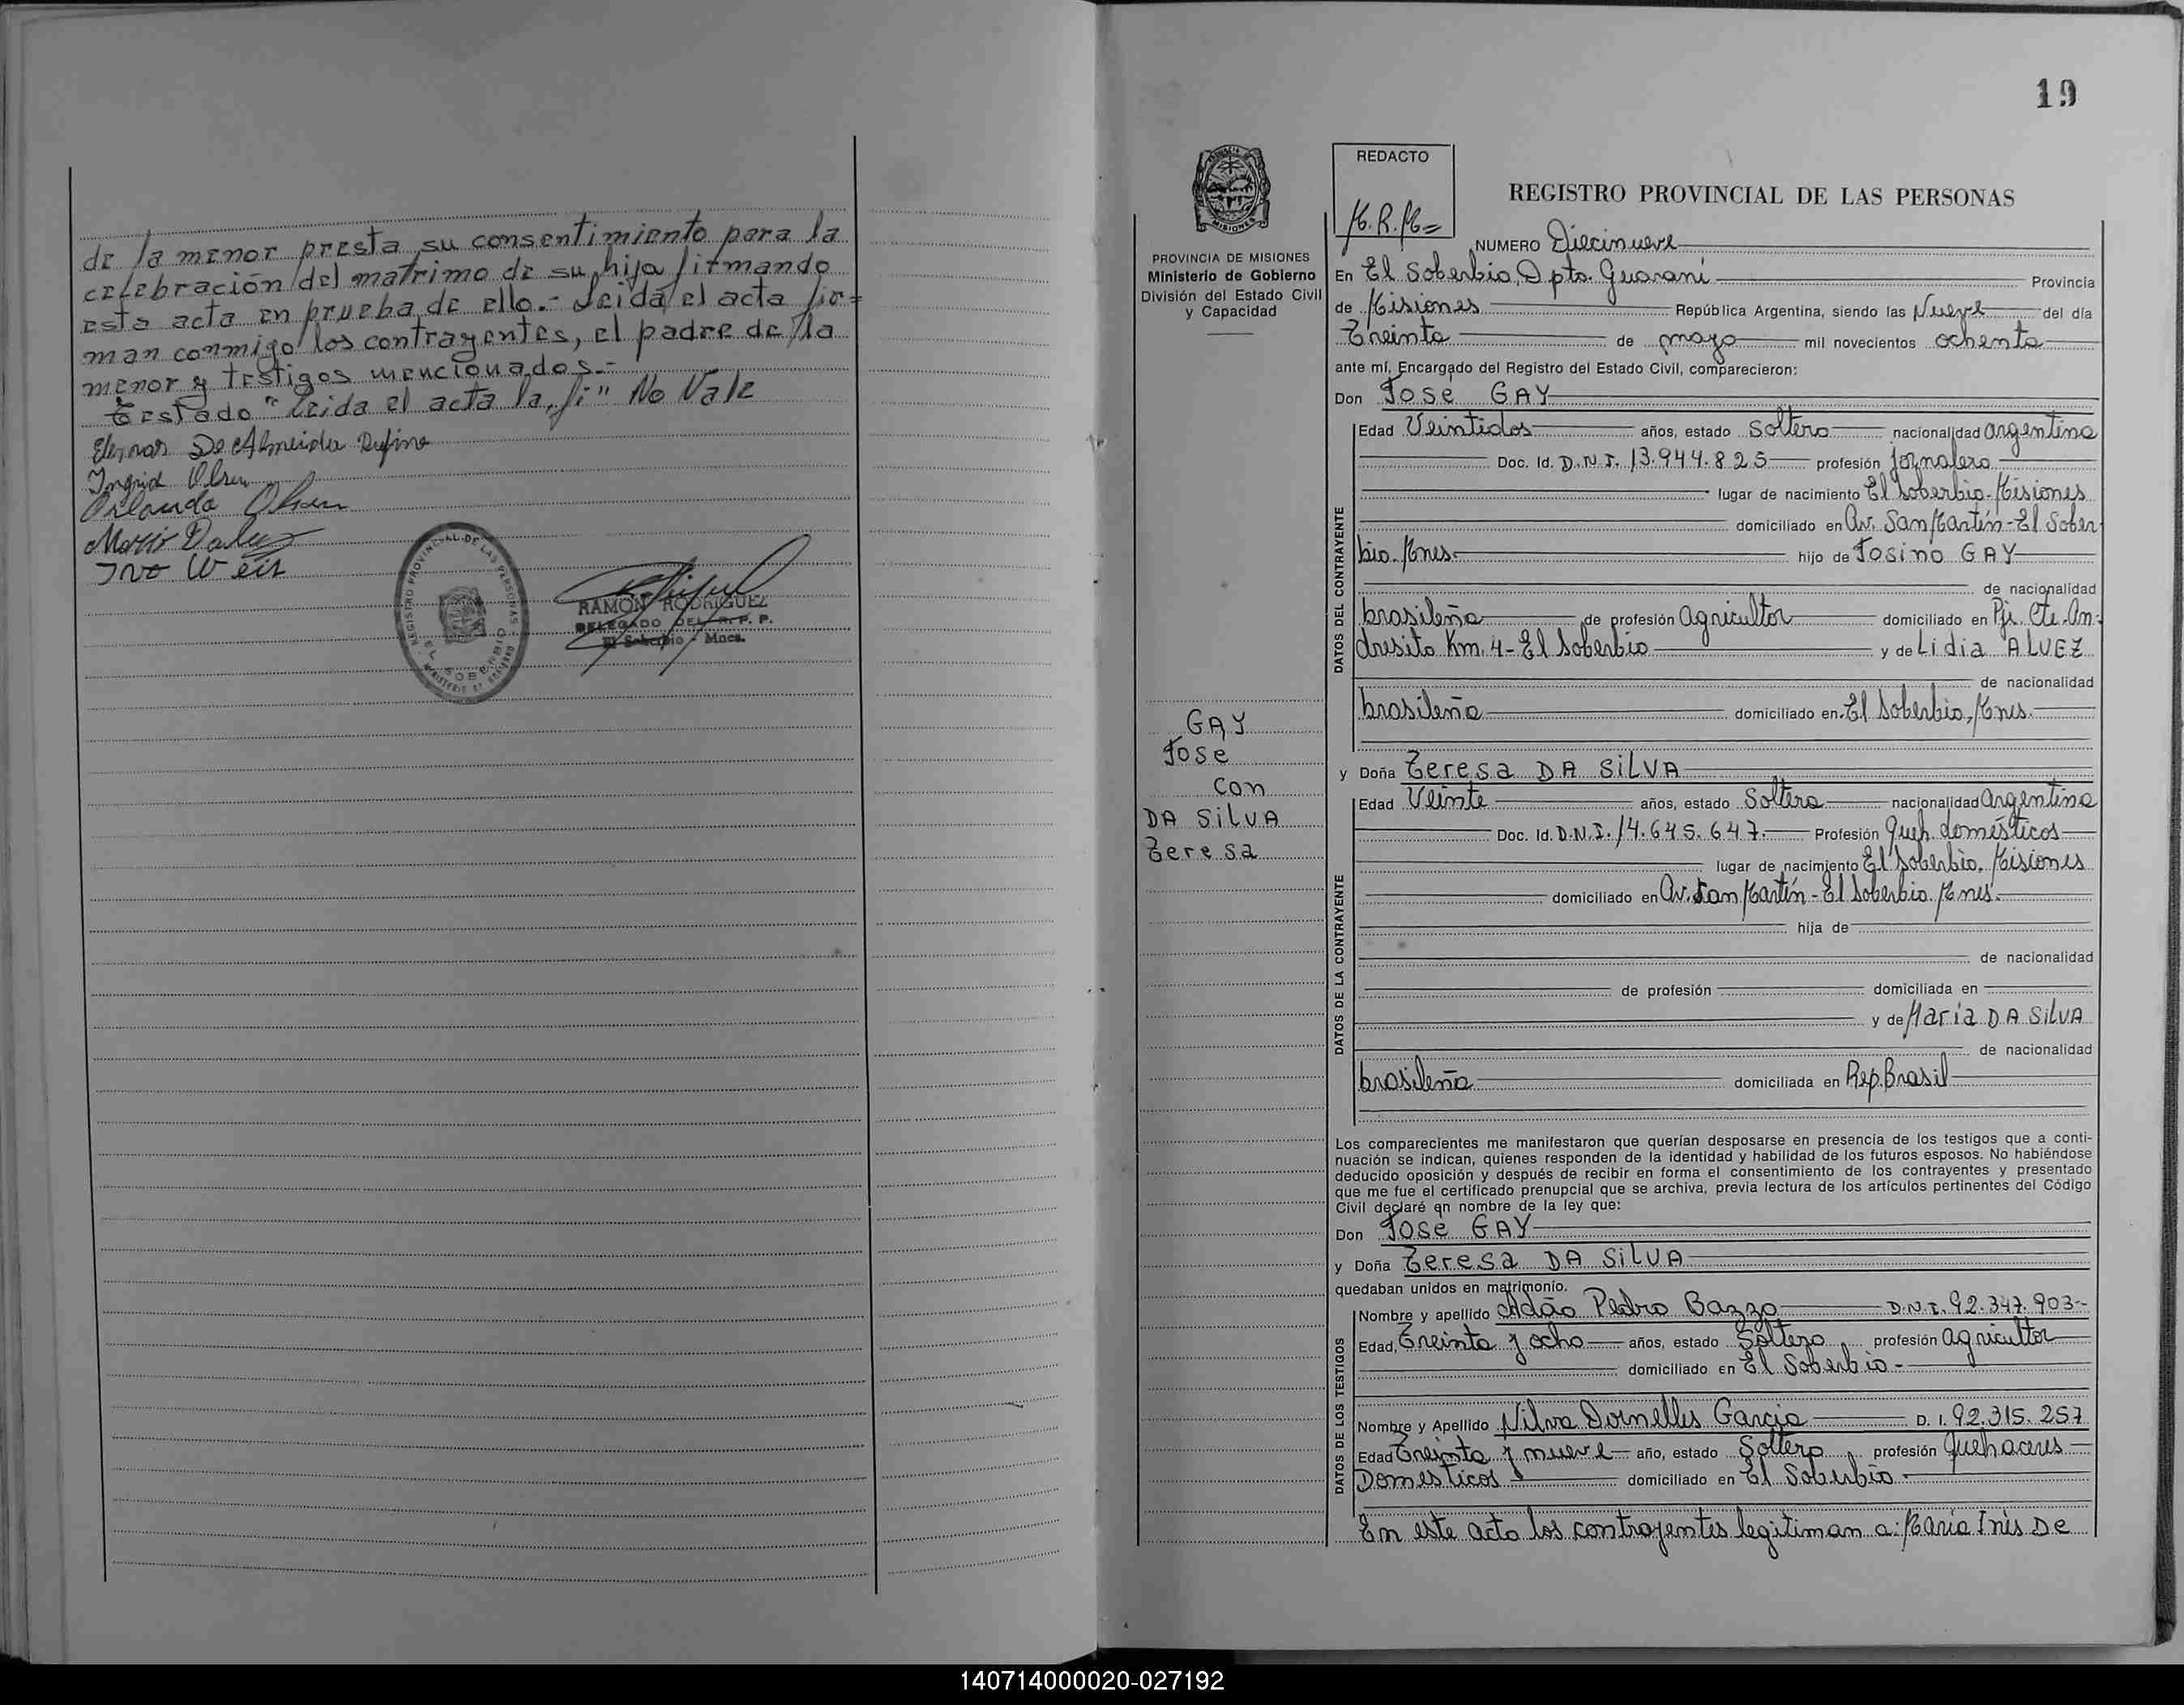 de la menor presta su consentimiento para la
celebración del matrimo de su hija firmando
esta acta en prueba de ello.- Leida el acta fir=
man conmigo los contrayentes, el padre de la
menor y testigos mencionados.-
Testado "Leida el acta la, fi" No Vale
De Almeida Rufino
Ingrid Olsen
Orlando Olsen
Ivo Weis
REGISTRO PROVINCIAL DE LAS PERSONAS
EL SOBERBIO
RAMON RODRIGUEZ
DELEGADO DEL R. P. P.
El Soberbio - Mnes.
19
PROVINCIA DE MISIONES
Ministerio de Gobierno
División del Estado Civil
y Capacidad
GAY
Jose
con
DA SiLVA
Teresa
REDACTO
M.R.M=
REGISTRO PROVINCIAL DE LAS PERSONAS
NUMERO Diecinueve
En El Soberbio, Dpto. Guaraní Provincia
de Misiones República Argentina, siendo las Nueve del día
Treinta de mayo mil novecientos ochenta
ante mí, Encargado del Registro del Estado Civil, comparecieron:
Don Jose GAY
Edad Veintidos años, estado Soltero nacionalidad argentina
Doc. Id. D.N.I. 13.944.825 profesión Jornalero
lugar de nacimiento El Soberbio-Misiones
domiciliado en Av. San Martín-El Sober-
bio.Mnes. hijo de Josino GAY
de nacionalidad
brasileña de profesión agricultor domiciliado en Pje. Cte. An-
dresito Km. 4-El Soberbio y de Lidia ALVEZ
de nacionalidad
brasileña domiciliado en El Soberbio, Mnes.
y Doña Teresa DA SiLVA
Edad Veinte años, estado Soltera nacionalidad argentina
Doc. Id. D.N.I. 14.645.647. Profesión Queh. domésticos
lugar de nacimiento El Soberbio. Misiones
domiciliado en Av. San Martín-El Soberbio. Mnes.
hija de
de nacionalidad
de profesión domiciliada en
y de Maria DA SiLVA
de nacionalidad
brasileña domiciliada en Rep.Brasil
DATOS DEL CONTRAYENTE
DATOS DE LA CONTRAYENTE
Los comparecientes me manifestaron que querían desposarse en presencia de los testigos que a conti-
nuación se indican, quienes responden de la identidad y habilidad de los futuros esposos. No habiéndose
deducido oposición y después de recibir en forma el consentimiento de los contrayentes y presentado
que me fue el certificado prenupcial que se archiva, previa lectura de los artículos pertinentes del Código
Civil declaré en nombre de la ley que:
Don Jose GAY
y Doña Teresa DA SiLVA
quedaban unidos en matrimonio.
Nombre y apellido Adão Pedro Bazzo D.N.I. 92.347.903-
Edad Treinta y ocho años, estado Soltero profesión agricultor
domiciliado en El Soberbio-
Nombre y Apellido Nilva Dornelles Garcia D.I. 92.315.257
Edad Treinta y nueve año, estado Soltera profesión Quehaceres
Domesticos domiciliado en El Soberbio-
DATOS DE LOS TESTIGOS
En este acto los contrayentes legitiman a: Maria Inés De
140714000020-027192